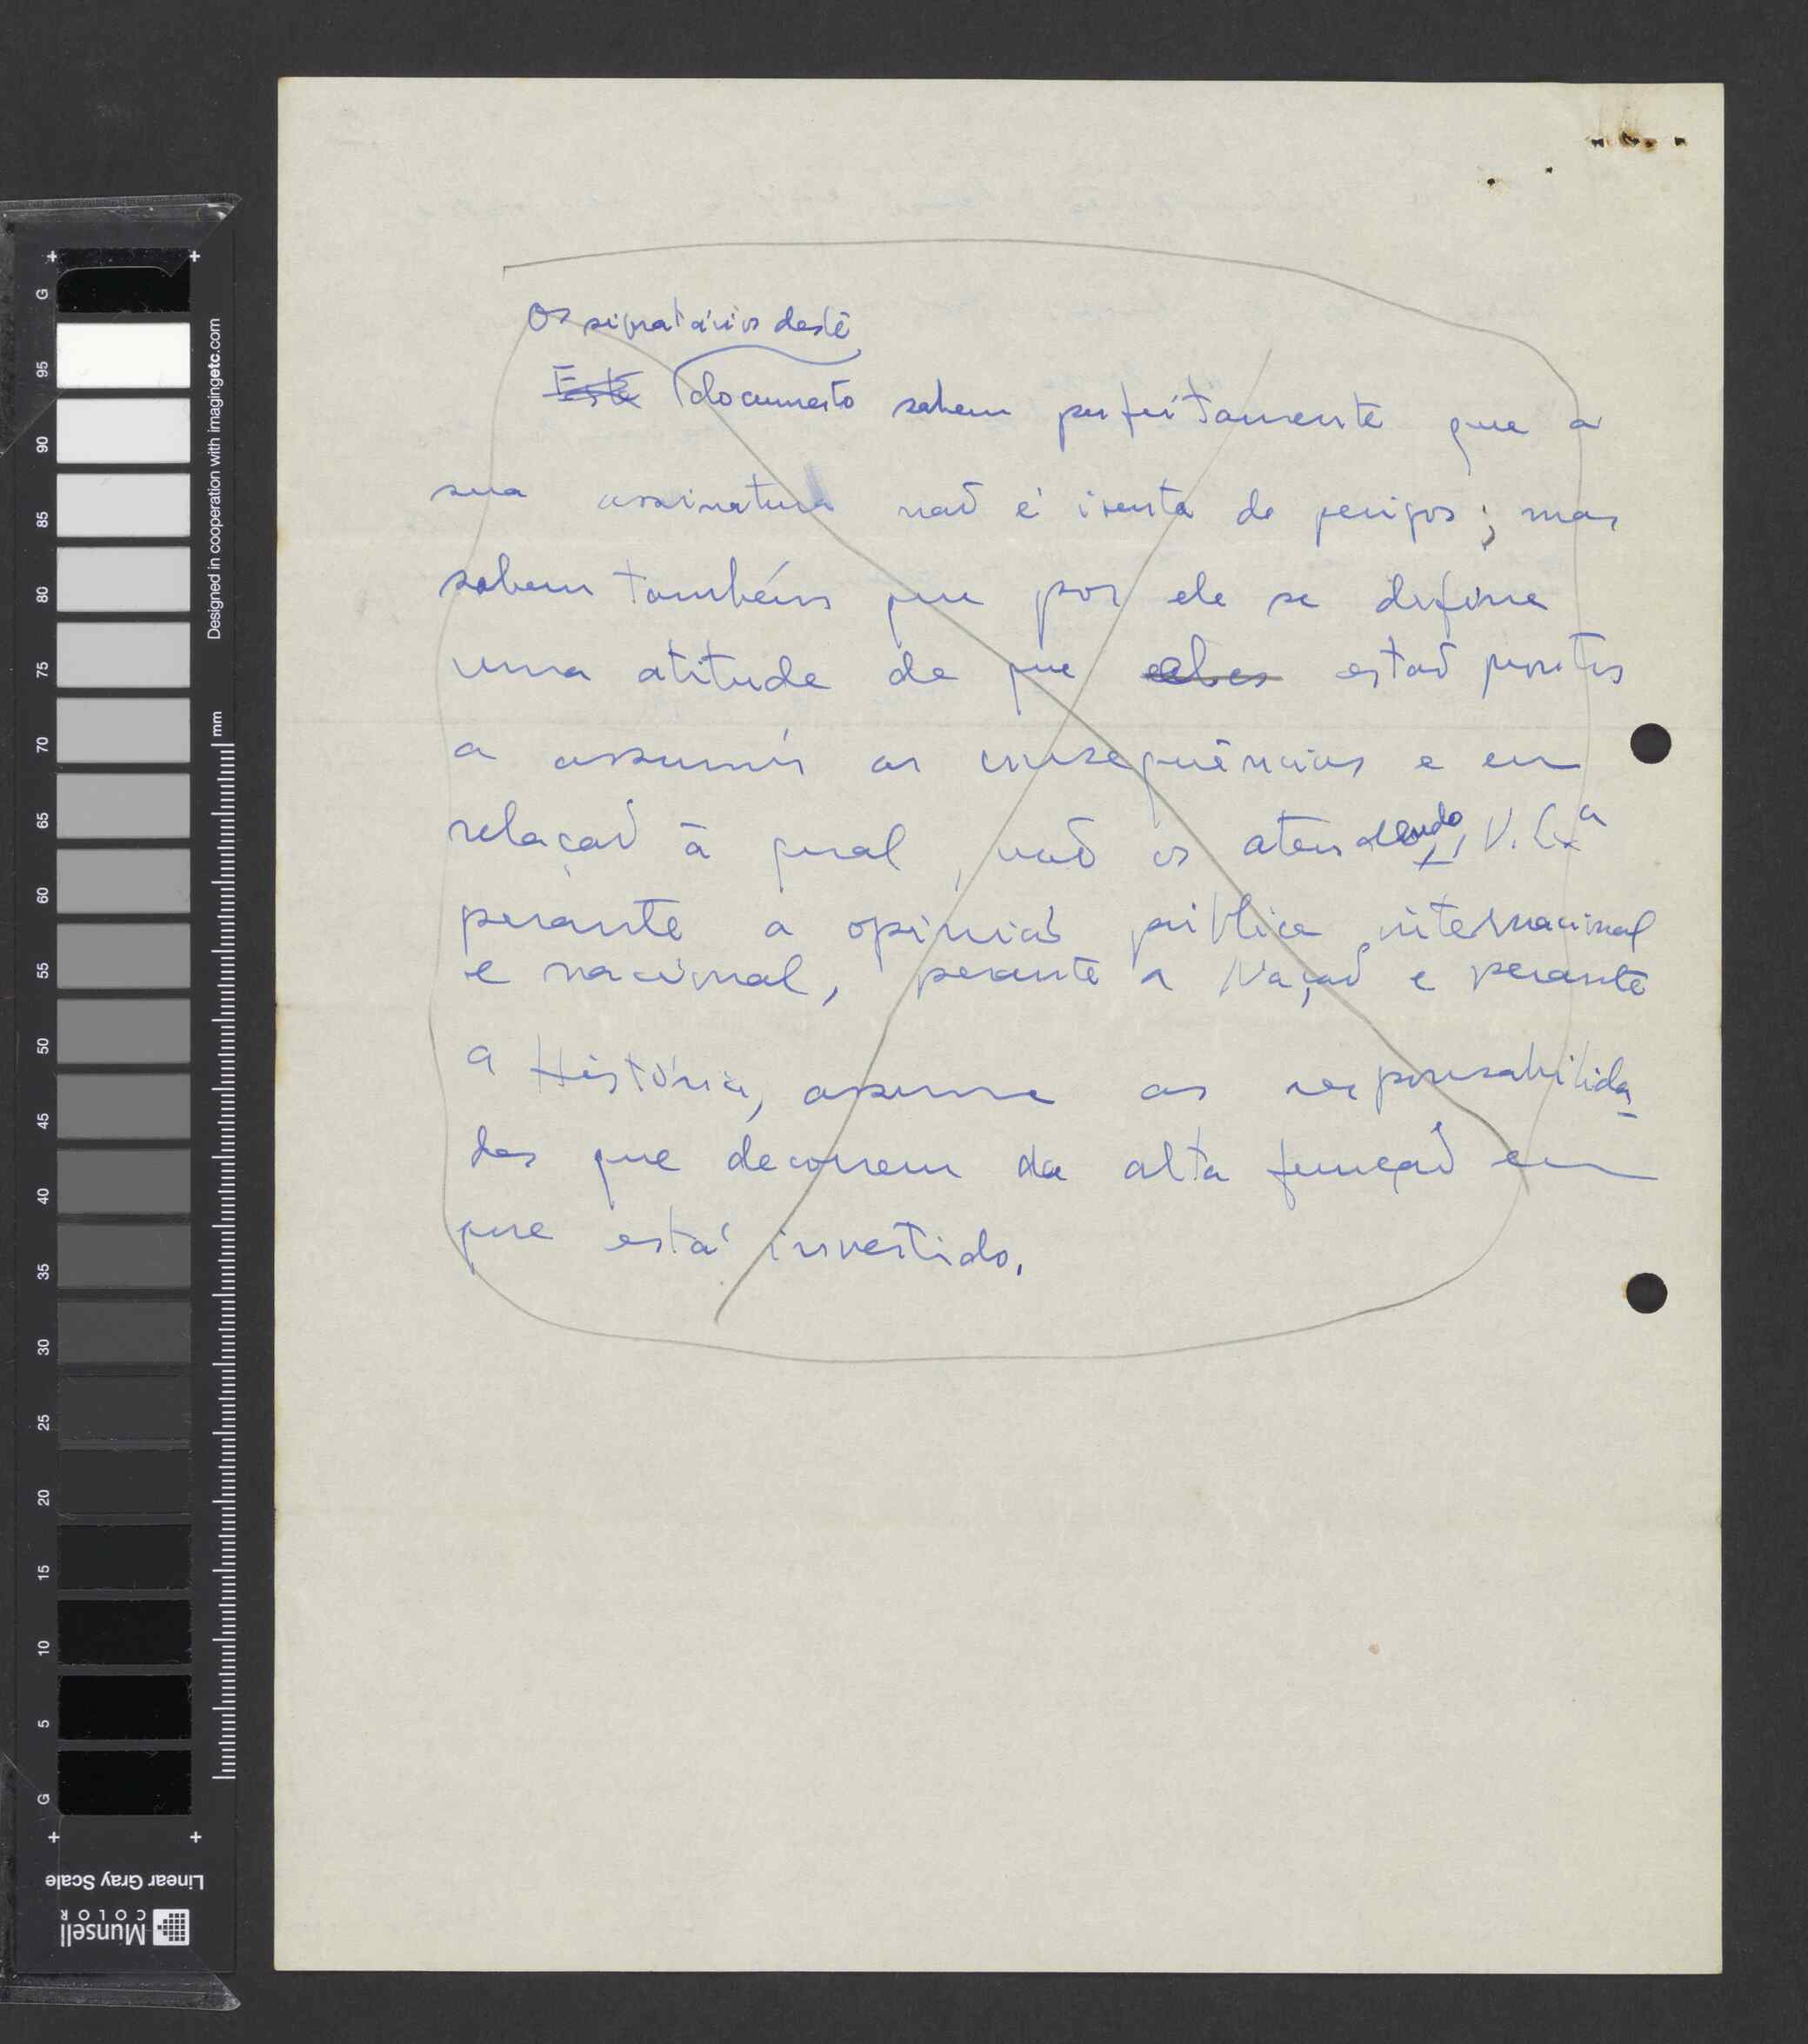 Os signatários deste
Este documento sabem perfeitamente que a
sua assinatura não é isenta de perigos; mas
sabem também que por ele se define
uma atitude de que estão prontos
a assumir as consequências e em
relação à qual, não os atendendo, V. Exª
perante a opinião pública internacional
e nacional, perante a Nação e perante
a História, assume as responsabilida-
des que decorrem da alta função em
que está investido.
Designed in cooperation with imagingetc.com
mm
G
95
90
85
80
75
70
65
60
55
50
45
40
35
30
25
20
15
10
5
G
Linear Gray Scale
Munsell
COLOR